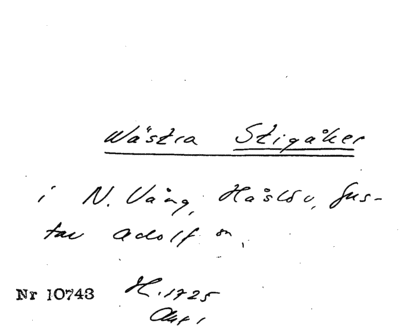 Wästra Stigåker
i N. Vång, Håslöv, Gus-
tav Adolf sn,
Nr 10743 H. 1725
Akt 1